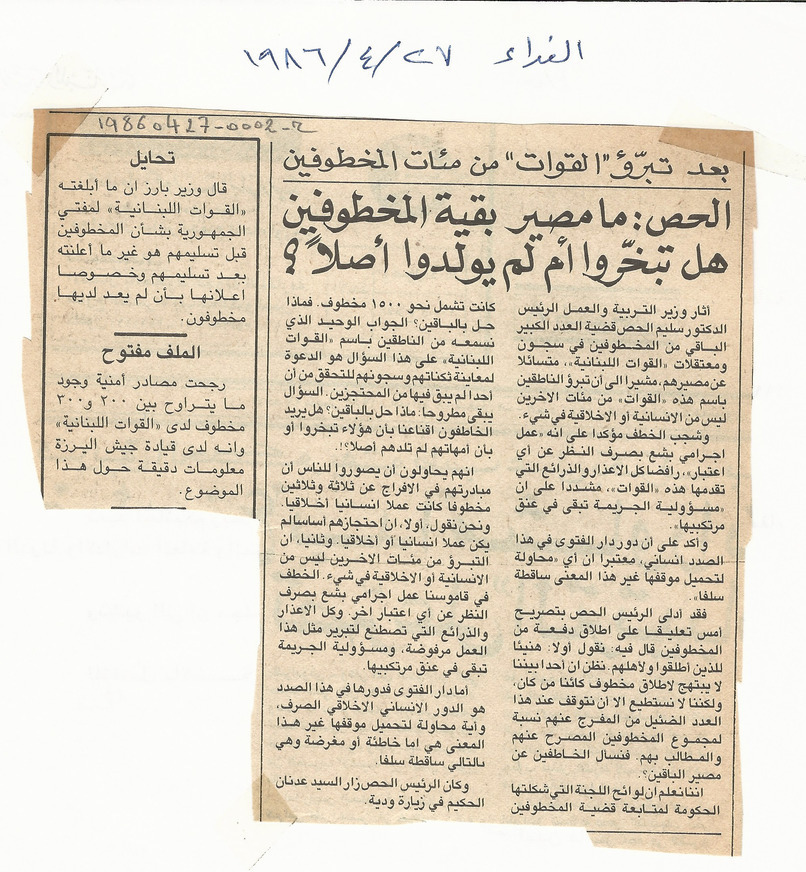 الفداء ٢٧/٤/١٩٨٦
19860427-0002-2
بعد تبرّؤ "القوات" من مئات المخطوفين
الحص: ما مصير بقية المخطوفين
هل تبخّروا أم لم يولدوا أصلاً؟
أثار وزير التربية والعمل الرئيس
الدكتور سليم الحص قضية العدد الكبير
الباقي من المخطوفين في سجون
ومعتقلات «القوات اللبنانية»، متسائلا
عن مصيرهم، مشيرا الى أن تبرؤ الناطقين
باسم هذه «القوات» من مئات الاخرين
ليس من الانسانية أو الاخلاقية في شيء.
وشجب الخطف مؤكدا على انه «عمل
اجرامي بشع بصرف النظر عن أي
اعتبار»، رافضا كل الاعذار والذرائع التي
تقدمها هذه «القوات»، مشددا على ان
«مسؤولية الجريمة تبقى في عنق
مرتكبيها».
وأكد على أن دور دار الفتوى في هذا
الصدد انساني، معتبرا ان أي «محاولة
لتحميل موقفها غير هذا المعنى ساقطة
سلفا».
فقد أدلى الرئيس الحص بتصريح
أمس تعليقا على اطلاق دفعة من
المخطوفين قال فيه: نقول أولا: هنيئا
للذين أطلقوا ولأهلهم. نظن ان احدا بيننا
لا يبتهج لاطلاق مخطوف كائنا من كان،
ولكننا لا نستطيع الا أن نتوقف عند هذا
العدد الضئيل من المفرج عنهم نسبة
لمجموع المخطوفين المصرح عنهم
والمطالب بهم. فنسأل الخاطفين عن
مصير الباقين؟
اننا نعلم ان لوائح اللجنة التي شكلتها
الحكومة لمتابعة قضية المخطوفين
كانت تشمل نحو ١٥٠٠ مخطوف. فماذا
حل بالباقين؟ الجواب الوحيد الذي
نسمعه من الناطقين باسم «القوات
اللبنانية» على هذا السؤال هو الدعوة
لمعاينة ثكناتهم وسجونهم للتحقق من أن
أحدا لم يبق فيها من المحتجزين. السؤال
يبقى مطروحا: ماذا حل بالباقين؟ هل يريد
الخاطفون اقناعنا بأن هؤلاء تبخروا أو
بأن أمهاتهم لم تلدهم أصلا؟!.
انهم يحاولون أن يصوروا للناس أن
مبادرتهم في الافراج عن ثلاثة وثلاثين
مخطوفا كانت عملا انسانيا أخلاقيا.
ونحن نقول، أولا، ان احتجازهم أساسا لم
يكن عملا انسانيا أو أخلاقيا. وثانيا، ان
التبرؤ من مئات الاخرين ليس من
الانسانية أو الاخلاقية في شيء. الخطف
في قاموسنا عمل اجرامي بشع بصرف
النظر عن أي اعتبار اخر. وكل الاعذار
والذرائع التي تصطنع لتبرير مثل هذا
العمل مرفوضة، ومسؤولية الجريمة
تبقى في عنق مرتكبيها.
أما دار الفتوى فدورها في هذا الصدد
هو الدور الانساني الاخلاقي الصرف،
وأية محاولة لتحميل موقفها غير هذا
المعنى هي اما خاطئة أو مغرضة وهي
بالتالي ساقطة سلفا.
وكان الرئيس الحص زار السيد عدنان
الحكيم في زيارة ودية.
تحايل
قال وزير بارز ان ما أبلغته
«القوات اللبنانية» لمفتي
الجمهورية بشأن المخطوفين
قبل تسليمهم هو غير ما أعلنته
بعد تسليمهم وخصوصا
اعلانها بأن لم يعد لديها
مخطوفون.
الملف مفتوح
رجحت مصادر أمنية وجود
ما يتراوح بين ٢٠٠ و٣٠٠
مخطوف لدى «القوات اللبنانية»
وانه لدى قيادة جيش اليرزة
معلومات دقيقة حول هذا
الموضوع.